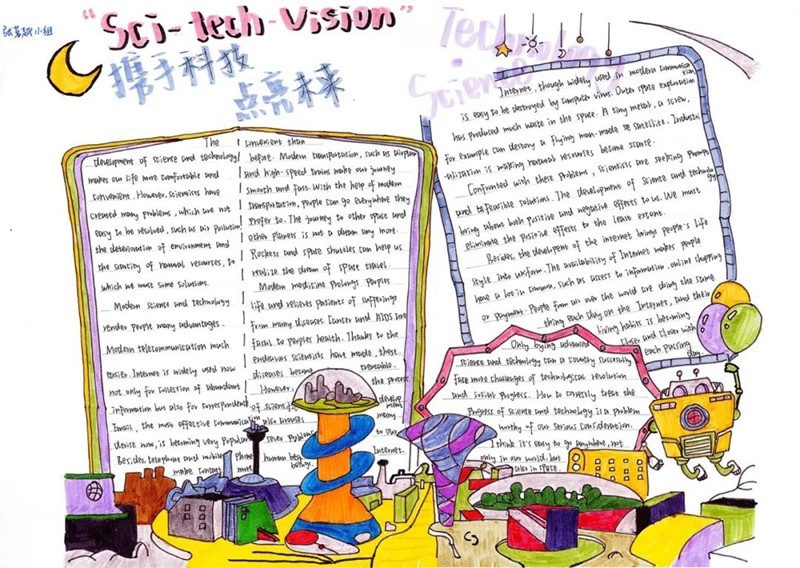 "Sci-tech-Vision"
携手科技
点亮未来
Technology
Science
The
development of science and technology
makes our life more comfortable and
convenient. However, scientists have
created many problems, which are not
easy to be resolved, such as air pollution,
the deterioration of environment and
the scarcity of natural resources, to
which we must some solutions.
Modern science and technology
render people many advantages.
Modern telecommunication much
easier. Internet is widely used now
not only for collection of abundant
information but also for correspondence
Email, the most effective communication
device now, is becoming very popular
Besides, telephone and mobile phone
make contact more
convenient than
before. Modern transportation, such as airplane
and high-speed trains make our journey
smooth and fast. With the help of modern
transportation, people can go everywhere they
prefer to. The journey to other space and
other planets is not a dream any more.
Rockets and space shuttles can help us
realize the dream of space travel.
Modern medicine prolongs peoples
life and relieves patients of sufferings
from many diseases. Cancer and AIDS are
fatal to people's health. Thanks to the
endeavors scientists have made, these
diseases become treatable.
However, the process
of scientific develop
ment
also arouses many
sever problems to our
human beings Internet.
Internet, though widely used in modern communica
tion,
is easy to be destroyed by computer virus. Outer space exploration
has produced much waste in the space. A tiny metal, a screw,
for example can destroy a flying man-made satellite. Industri
alization is making natural resources become scarce.
Confronted with these problems, scientists are seeking prompt
and feasible solutions. The development of science and technolo
gy
bring about both positive and negative effects to us. We must
eliminate the positive effects to the least extent.
Besides, the developent of the internet brings people's life
style into uniform. The availability of Internet makes people
have a lot in common, such as access to information, online shopping
or payment. People from all over the world are doing the same
thing each day on the Internet, and their
living habits is becoming
closer and closer with
each passing
day.
Only bying advanced
science and technology can a country successfully
face more challenges of technological revolution
and social progress. How to correctly treat the
progress of science and technology is a problem
worthy of our serious consideration.
I think it's easy to go anywhere, not
only in our world, but
also in space.